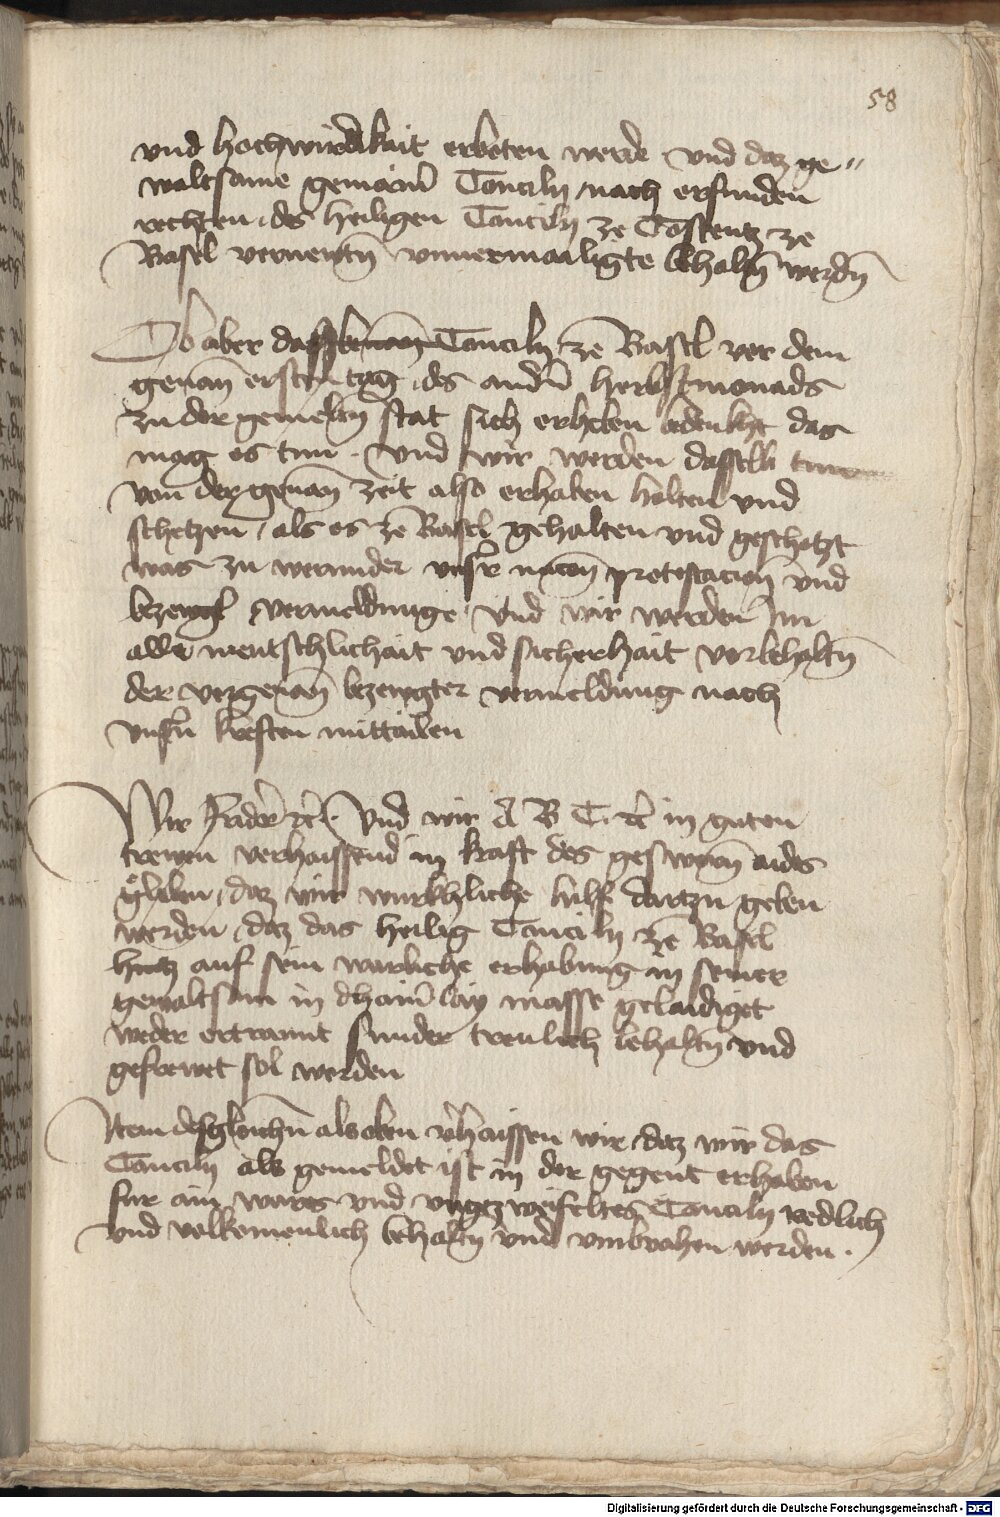 58
vnd hochwirdikait erboten werde vnd daz ge"
waltsame gemainr Concily nach erfunden
rechten des heiligen Concily ze Costentz ze
Basel vernewtn vnuermailigte behaltn werdn
Ob aber dasselb Concily ze Basel vor dem
genan ersten tag des andrn herbstmonads
zu der gemeltn stat sich erheben bedeukht das
mag es tun . Vnd wir werden dasselb
von der genan zeit also erhaben halten vnd
schetzen / als es ze Basel gehalten vnd geschetzt
was zu werunder vnsr protestacion vnd
vermeldunge Vnd wir werden Im
alle mentschlichait vnd sicherhait vorbehaltn
der vorgenan bezewgter vermeldung nach
vnsrn kreften mittailen
Wir Fridr rc. Vnd wir A B C rc in guten
trewen verhaissend in kraft des geswornn aides
globen / daz wir wurkhliche hilf dartzu geben
werden / daz das heilig Concily ze Basel
hintz auf sein warliche erhabung in seiner
gewaltsam in dhainrlay masse gelaidiget
weder ertrannt sunder treulich behaltn vnd
gefrewet sol werden
Item desgleichn als oben verhaissen wir daz wir das
Concily als gemeldet ist in der gegent erhaben
fur ain wares vnd vngezweifeltes Concily redlich
vnd volkomenlich behaltn vnd vmbvahen werden .
Digitalisierung gefördert durch die Deutsche Forschungsgemeinschaft - DFG